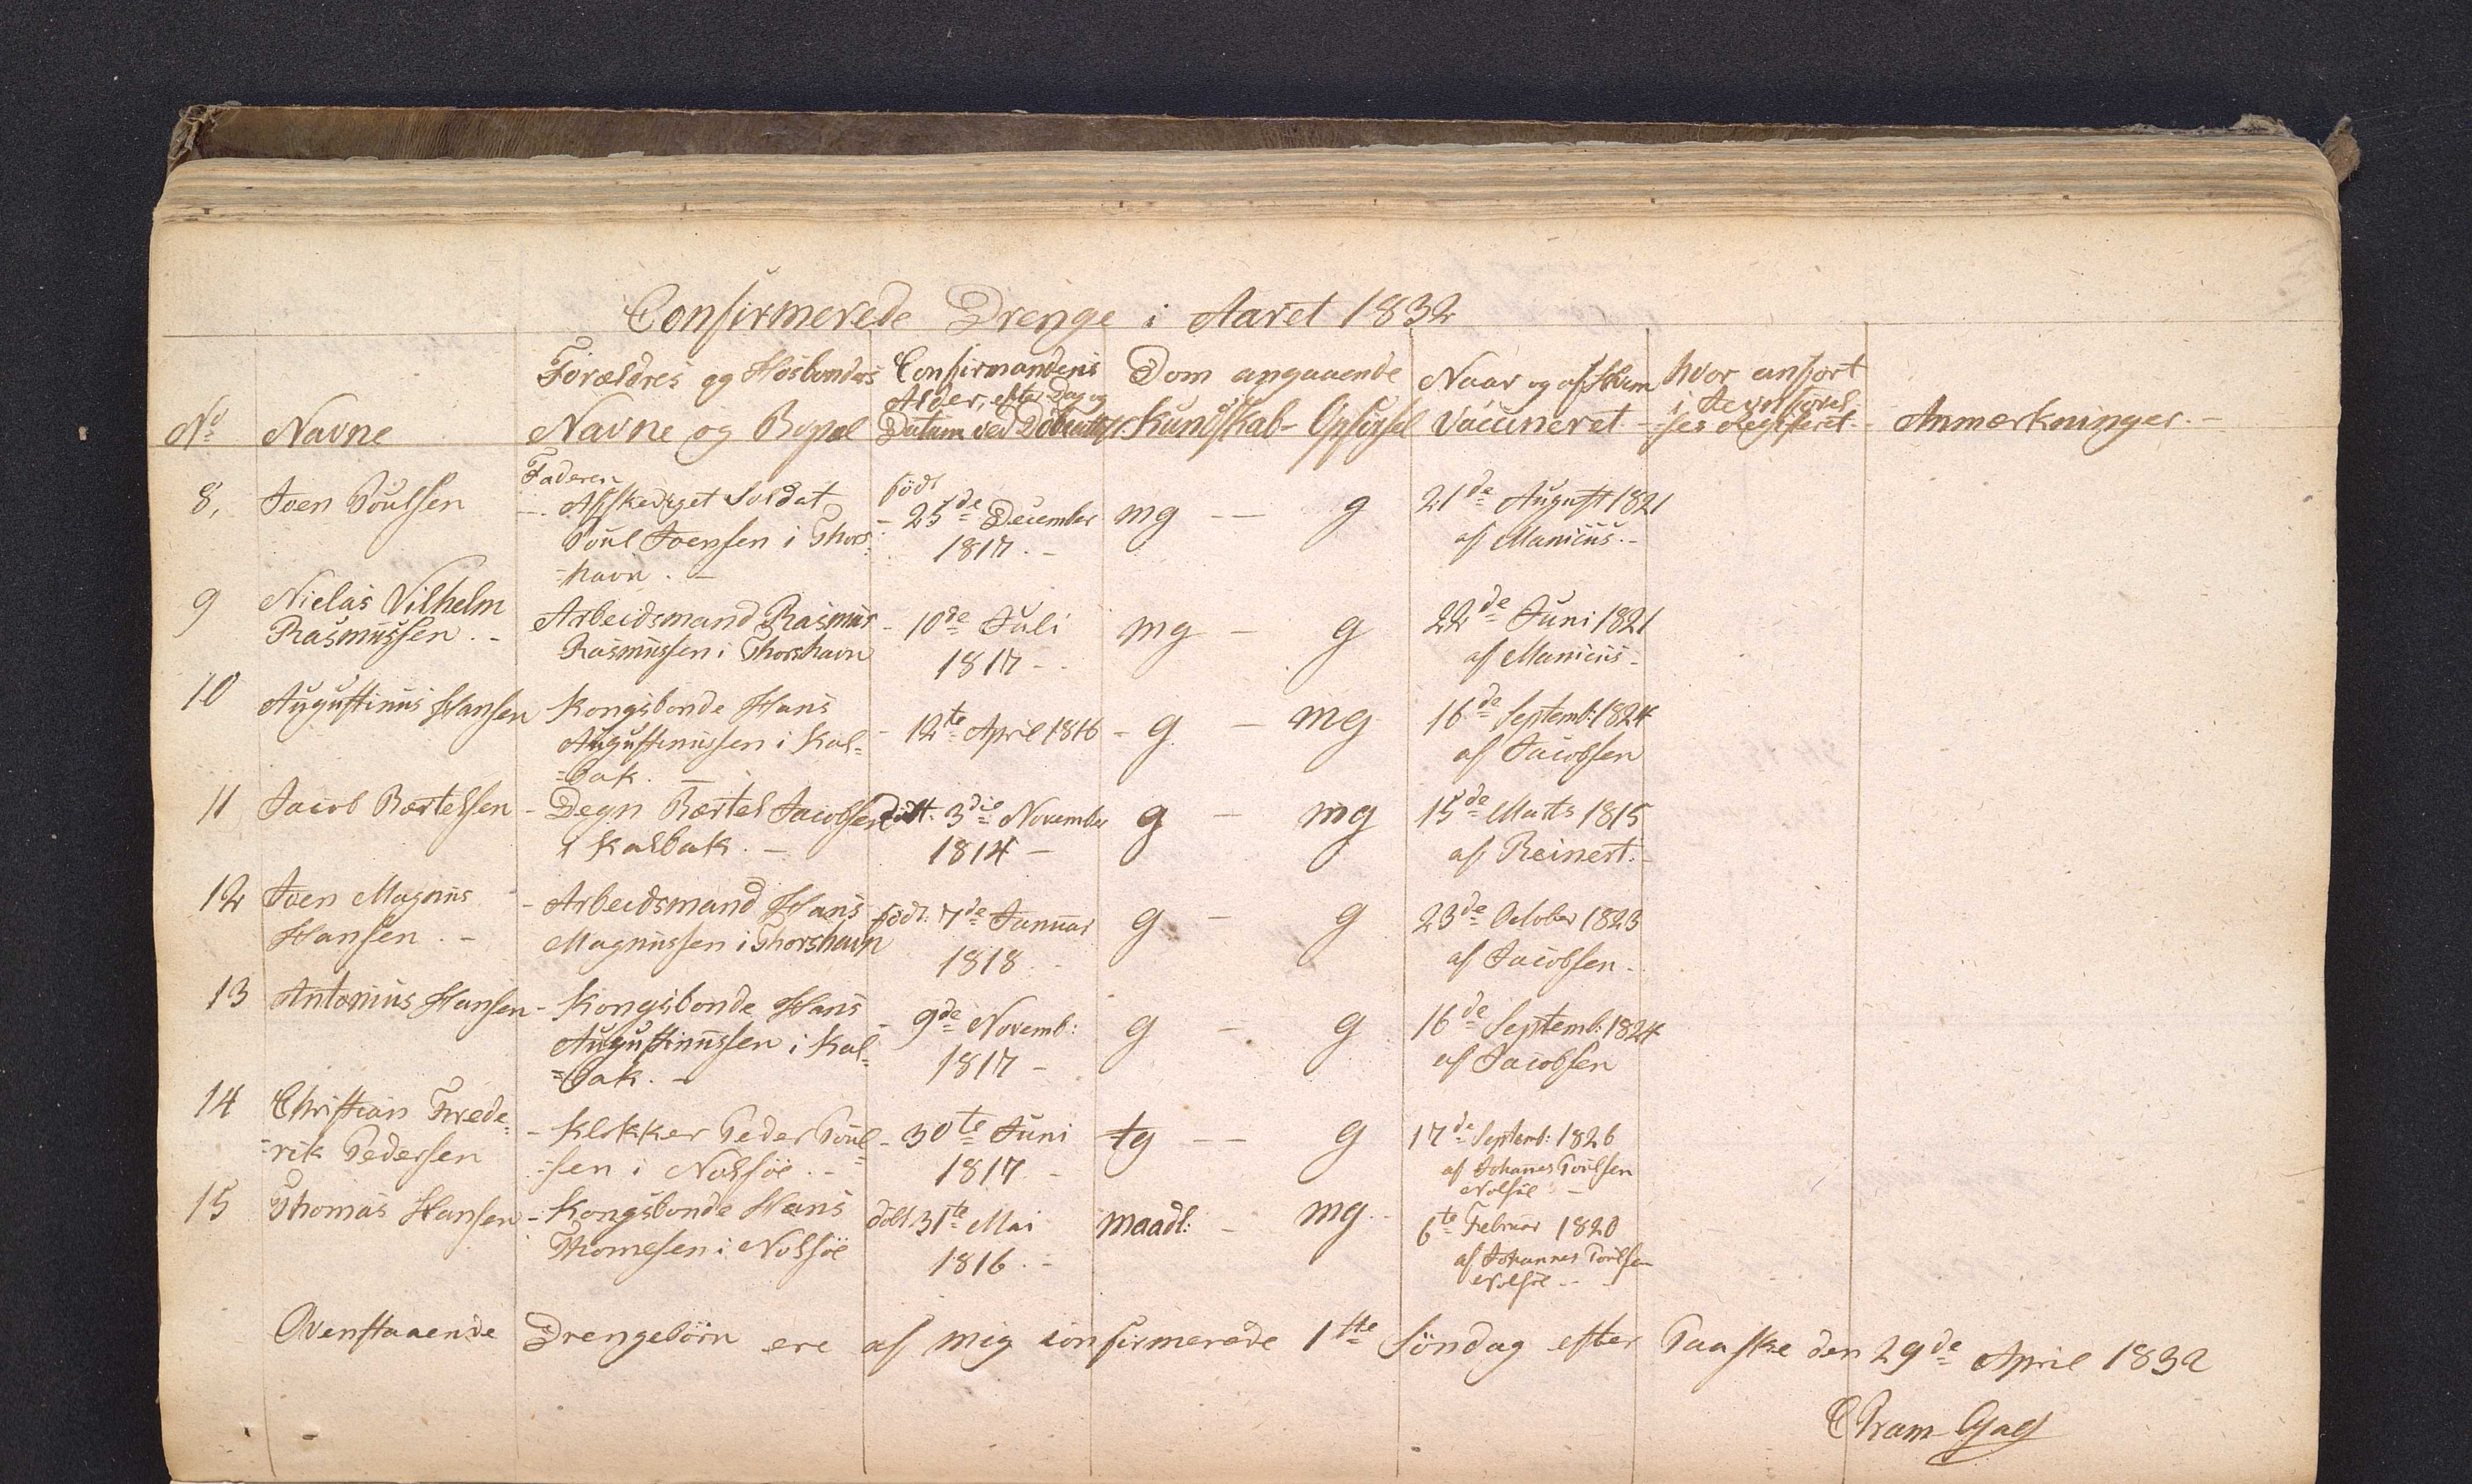 Confirmerede Drenge i Aaret 1832
No Navne
Forældres og Hosbonders Navne og Bopæl
Confirmandens Alder, efter Dag og Datum ved Døbeattest
Dom angaaende Kundskab - Opførsel
Naar og af Hvem Vacineret
hvor anført i Jevnførelses Registeret
Anmærkninger.-
8, Joen Poulsen
Faderen
Afskediget Soldat
Poul Joensen i Thors=
=havn. -
født
25de December
1817. -
mg -- g
21de August 1821
af Manicus.-
9 Nielas Vilhelm
Rasmussen. -
Arbeidsmand Rasmus
Rasmussen i Thorshavn
- 10de Juli
1817 -
mg - g
22de Juni 1821
af Manicus -
10 Augustinus Hansen
Kongsbonde Hans
Augustinussen i Kal=
=bak. -
- 12te April 1816
- g - mg
16de Septemb: 1824
af Jacobsen
11 Jacob Bertelsen
- Degn Bertel Jacobsen
i Kalbak. -
døbt. 3die November
1814 -
g - mg
15de Marts 1815
af Reinert. -
12 Joen Magnus
Hansen. -
- Arbeidsmand Hans
Magnussen i Thorshavn
født. 7de Januar
1818.
g - g
23de October 1823
af Jacobsen.
13 Antonius Hansen
- Kongsbonde Hans
Augustinussen i Kal=
=bak. -
- 9de Novemb:
1817 -
g - g
16de Septemb: 1824
af Jacobsen
14 Christian Frede=
=rik Pedersen
- Klokker Peder Poul=
=sen i Nolsøe. -
- 30te Juni
1817. -
tg -- g
17de Septemb: 1826
af Johanes Poulsen
Nolsøe -
15 Thomas Hansen
- Kongsbonde Hans
Thomesen i Nolsøe
døbt. 31te Mai
1816. -
maadl: - mg. -
6te Februar 1820
af Johannes Poulsen
Nolsøe -
Ovenstaaende Drengebörn ere af mig confirmerede 1ste Söndag efter Paaske den 29de April 1832